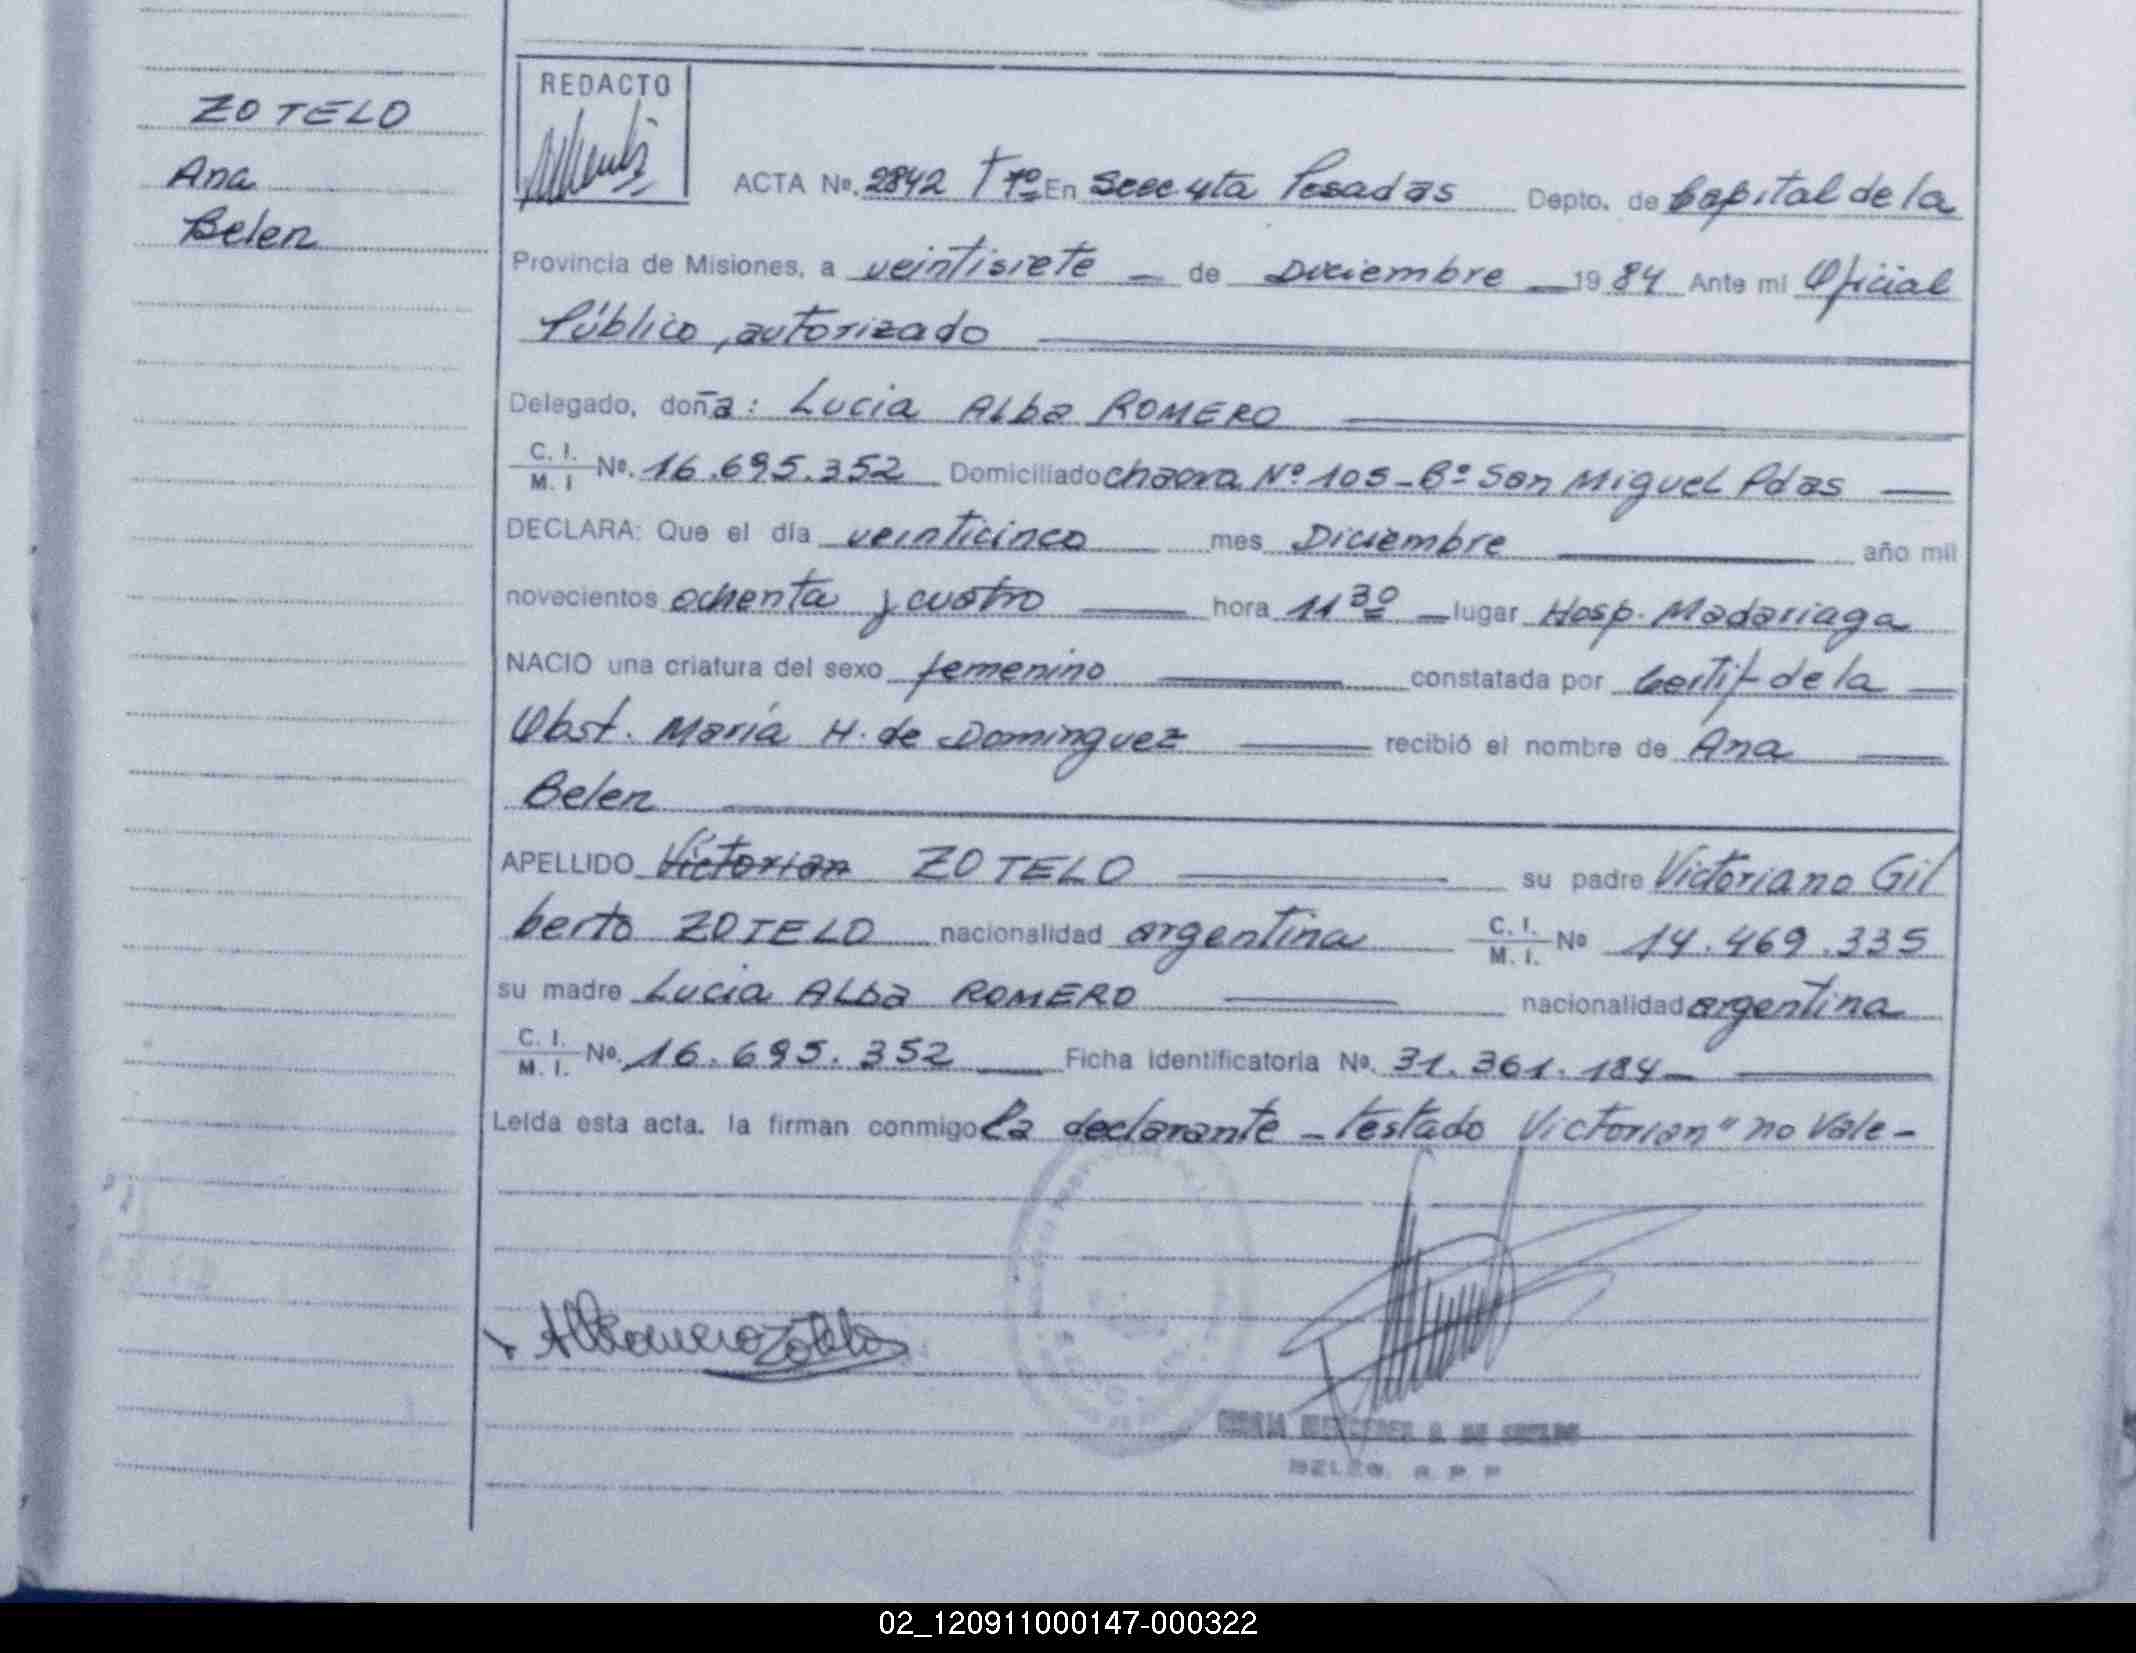 ZOTELO
Ana
Belen
REDACTO
ACTA No. 2842 T 7º En Secc 4ta Posadas Depto. de Capital de la
Provincia de Misiones, a veintisiete de Diciembre 1984 Ante mi Oficial
Público, autorizado
Delegado, doña: Lucia Alba ROMERO
C. I. / M. I No. 16.695.352 Domiciliado chacra Nº 105 - Bº San Miguel Pdas
DECLARA: Que el día veinticinco mes Diciembre año mil
novecientos ochenta y cuatro hora 11 30 lugar Hosp. Madariaga
NACIO una criatura del sexo femenino constatada por Certif de la
Obst. María H. de Dominguez recibió el nombre de Ana
Belen
APELLIDO Victorian ZOTELO su padre Victoriano Gil
berto ZOTELO nacionalidad argentina C. I. / M. I. No 14.469.335
su madre Lucia Alba ROMERO nacionalidad argentina
C. I. / M. I. No. 16.695.352 Ficha identificatoria No. 31.361.184
Leída esta acta. la firman conmigo la declarante - testado Victorian" no Vale -
02_120911000147-000322